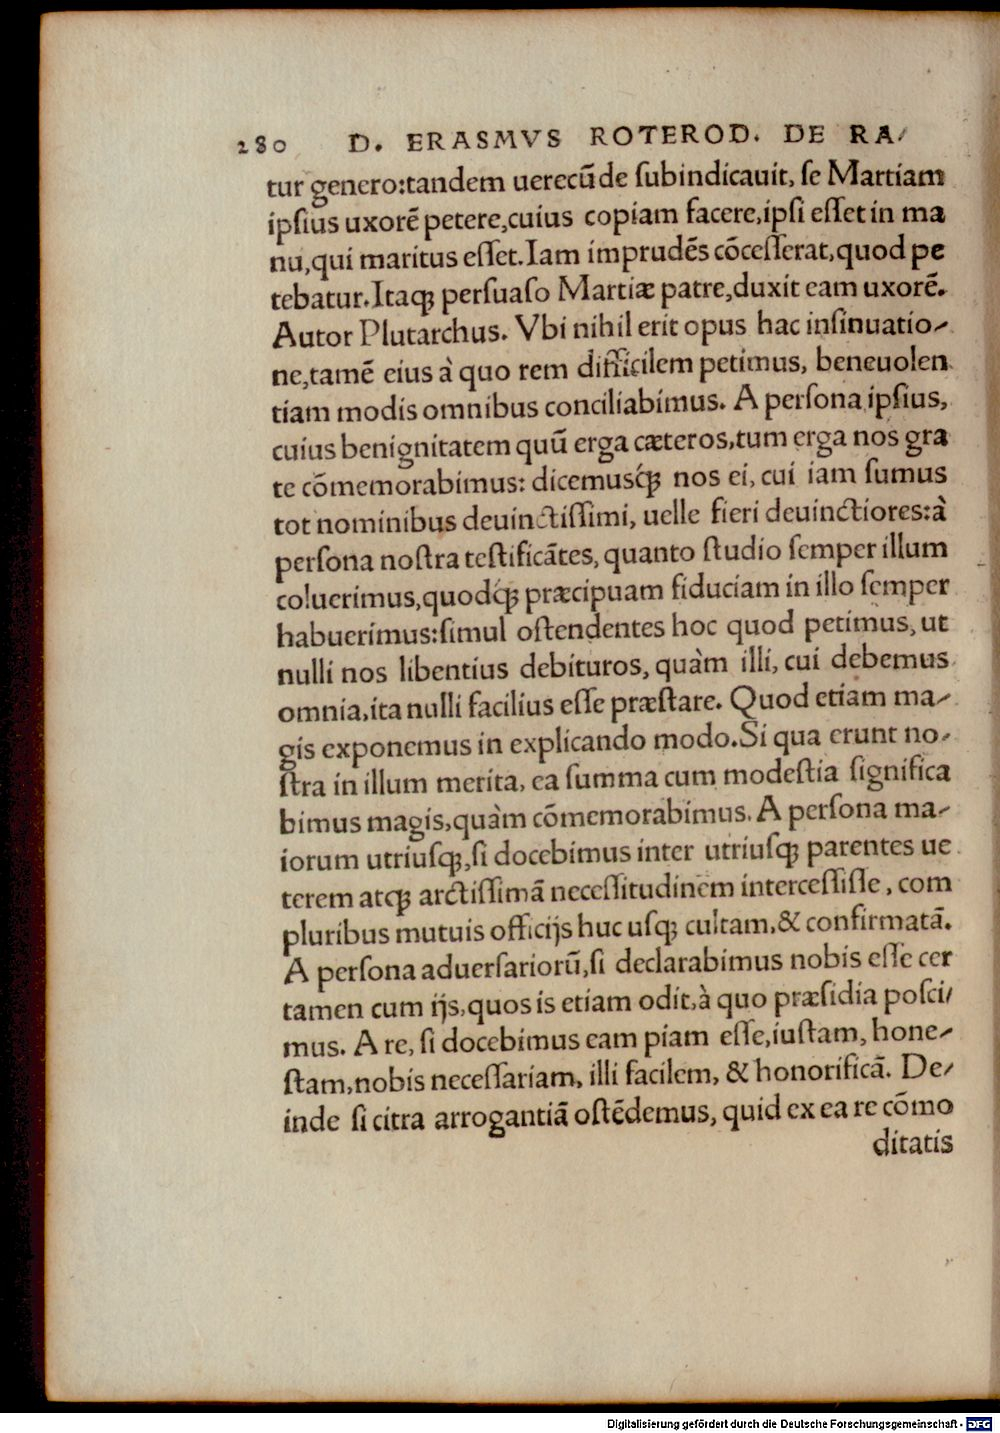 280 D. ERASMVS ROTEROD. DE RA-
tur genero:tandem uerecũde ſubindicauit, ſe Martiam
ipſius uxorẽ petere,cuius copiam facere,ipſi eſſet in ma
nu,qui maritus eſſet.Iam imprudẽs cõceſſerat,quod pe
tebatur.Itaqꝫ perſuaſo Martiæ patre,duxit eam uxorẽ.
Autor Plutarchus. Vbi nihil erit opus hac inſinuatio-
ne,tamẽ eius à quo rem difficilem petimus, beneuolen
tiam modis omnibus conciliabimus. A perſona ipſius,
cuius benignitatem quũ erga cæteros,tum erga nos gra
te cõmemorabimus: dicemusq́ꝫ nos ei, cui iam ſumus
tot nominibus deuinctiſſimi, uelle fieri deuinctiores:à
perſona noſtra teſtificãtes, quanto ſtudio ſemper illum
coluerimus,quodq́ꝫ præcipuam fiduciam in illo ſemper
habuerimus:ſimul oſtendentes hoc quod petimus, ut
nulli nos libentius debituros, quàm illi, cui debemus
omnia,ita nulli facilius eſſe præſtare. Quod etiam ma-
gis exponemus in explicando modo.Si qua erunt no-
ſtra in illum merita, ea ſumma cum modeſtia ſignifica
bimus magis,quàm cõmemorabimus. A perſona ma-
iorum utriuſqꝫ,ſi docebimus inter utriuſqꝫ parentes ue
terem atqꝫ arctiſſimã neceſſitudinem interceſſiſſe, com
pluribus mutuis officijs huc uſqꝫ cultam,& confirmatã.
A perſona aduerſariorũ,ſi declarabimus nobis eſſe cer
tamen cum ijs,quos is etiam odit,à quo præſidia poſci-
mus. A re, ſi docebimus eam piam eſſe,iuſtam, hone-
ſtam,nobis neceſſariam, illi facilem, & honorificã. De-
inde ſi citra arrogantiã oſtẽdemus, quid ex ea re cõmo
ditatis
Digitalisierung gefördert durch die Deutsche Forschungsgemeinschaft - DFG